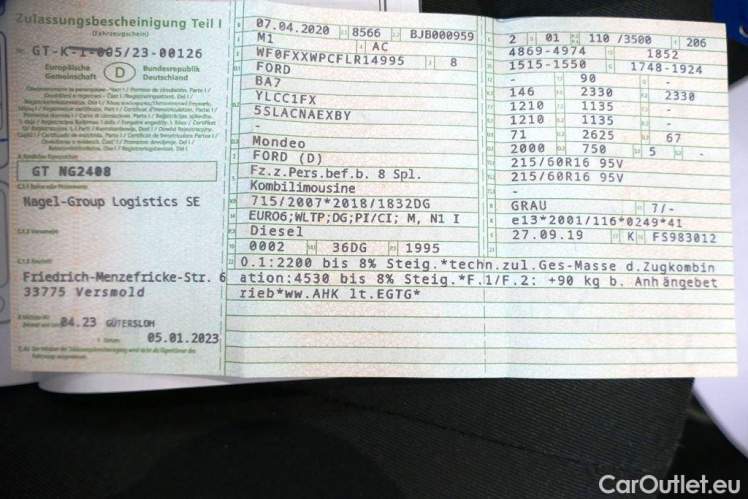 Zulassungsbescheinigung Teil I
(Fahrzeugschein)
Nr. GT-K-1-005/23-00126
Europäische Gemeinschaft D Bundesrepublik Deutschland
GT NG2408
Nagel-Group Logistics SE
Friedrich-Menzefricke-Str. 6
33775 Versmold
04.23 GÜTERSLOH
05.01.2023
07.04.2020 8566 BJB000959
M1 AC
WF0FXXWPCFLR14995 8
FORD
BA7
YLCC1FX
5SLACNAEXBY
-
Mondeo
FORD (D)
Fz.z.Pers.bef.b. 8 Spl.
Kombilimousine
715/2007*2018/1832DG
EURO6;WLTP;DG;PI/CI; M, N1 I
Diesel
0002 36DG 1995
2 01 110 /3500 206
4869-4974 1852
1515-1550 1748-1924
- 90 -
146 2330 2330
1210 1135 -
1210 1135 -
71 2625 67
2000 750 5 -
215/60R16 95V
215/60R16 95V
-
GRAU 7/-
e13*2001/116*0249*41
27.09.19 K FS983012
O.1:2200 bis 8% Steig.*techn.zul.Ges-Masse d.Zugkombin
ation:4530 bis 8% Steig.*F.1/F.2: +90 kg b. Anhängebet
rieb*ww.AHK lt.EGTG*
CarOutlet.eu